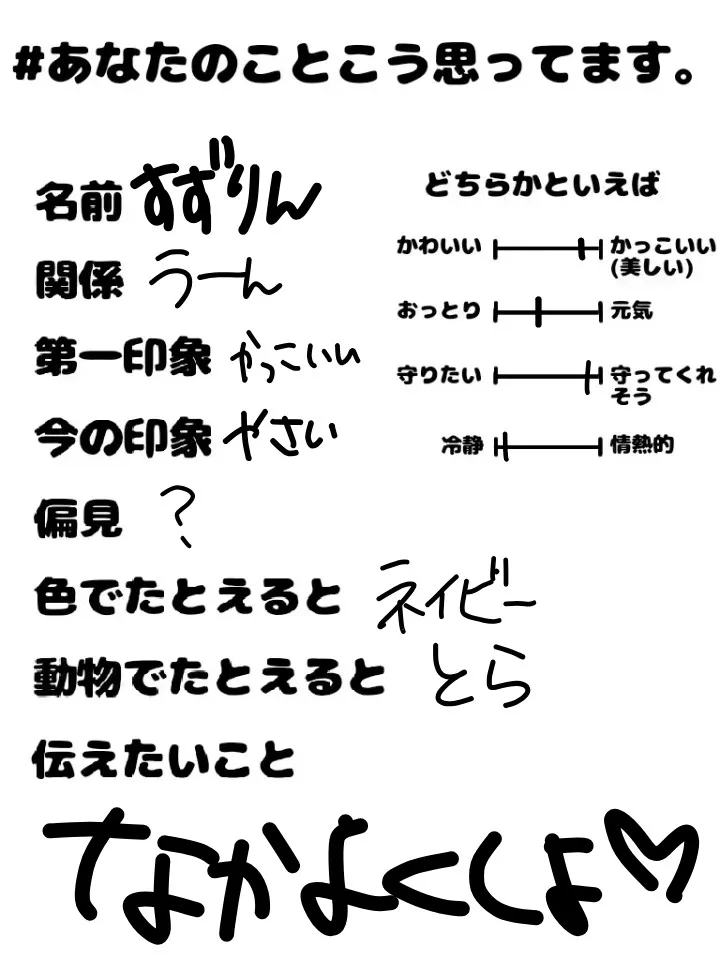 #あなたのことこう思ってます。
名前 すずりん
関係 うーん
第一印象 かっこいい
今の印象 やさい
偏見 ?
色でたとえると ネイビー
動物でたとえると とら
伝えたいこと
なかよくしよ♡
どちらかといえば
かわいい かっこいい
(美しい)
おっとり 元気
守りたい 守ってくれ
そう
冷静 情熱的